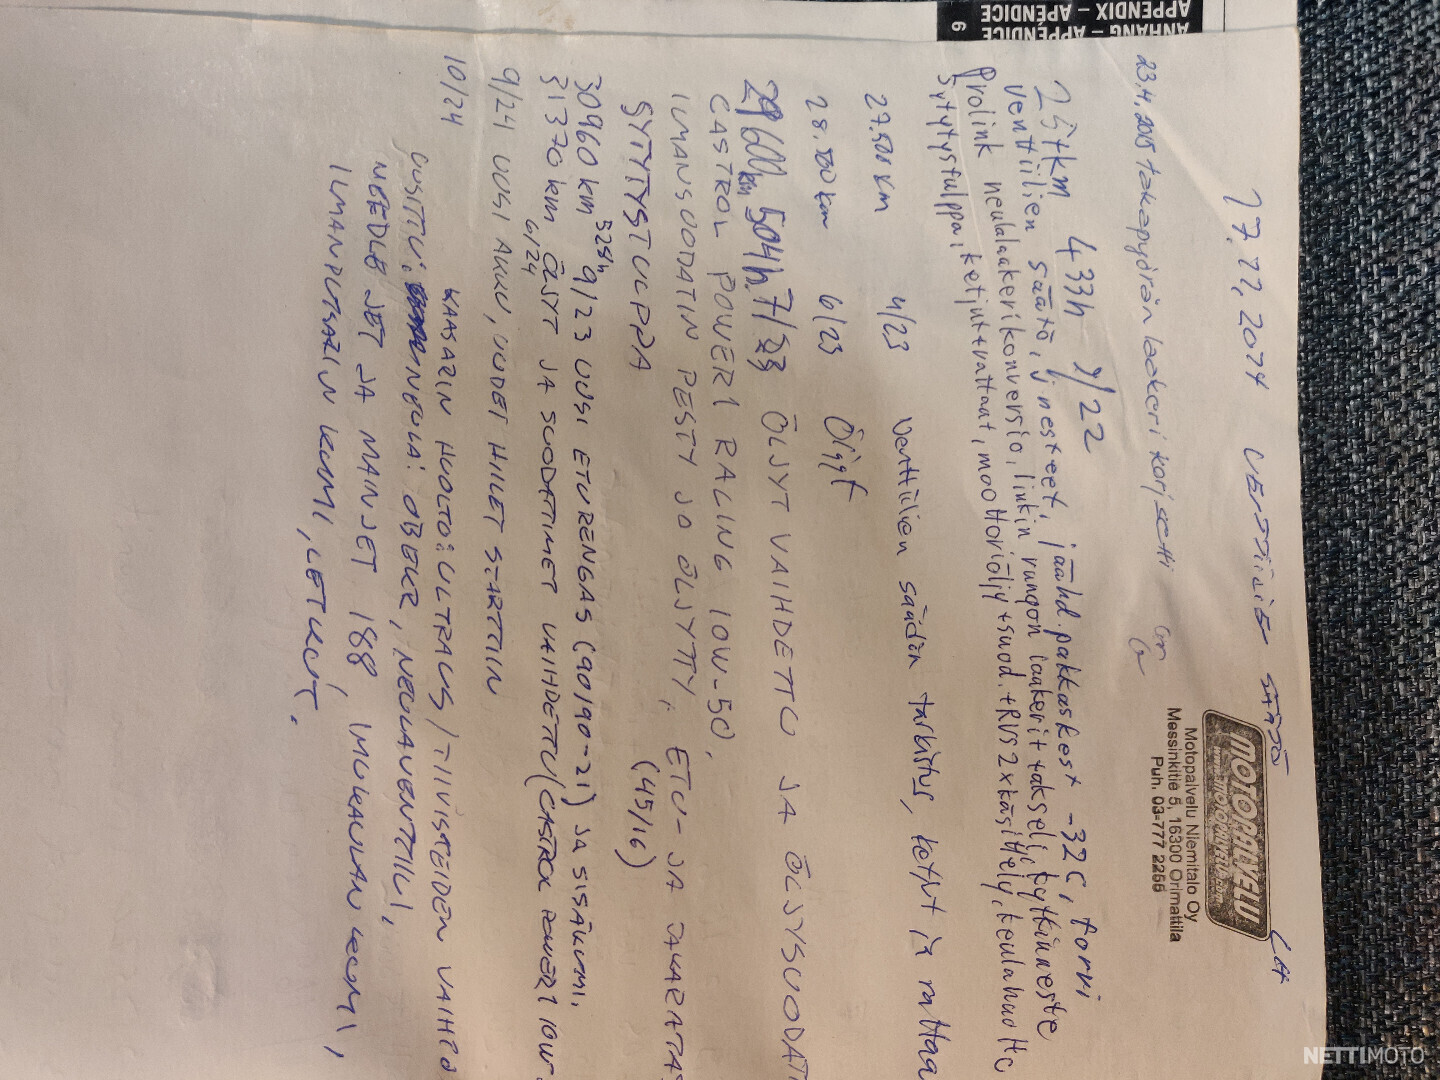 ANHANG – APPÉNDICE
APPENDIX – APÉNDICE
6
17.11.2014 VENTTIILIEN SÄÄTÖ
MOTOPALVELU
Motopalvelu Niemitalo Oy
Messinkitie 5, 16300 Orimattila
Puh. 03-777 2255
23.4.2015 takapyörän laakeri korjsetti
25tkm 433h 9/22
Venttiilien säätö, jnesteet, jäähd. pakkaskest -32C, torvi
Prolink neulalaakerikonversio, linkin rungon laakerit+akseli, kytkinneste
Sytytystulppa, ketjut+rattaat, moottoriöljy+suod.+RVS 2xkäsittely, keulahuolto
27.500 km 4/23 Venttiilien säädön tarkistus, ketjut ja rattaa
28.500km 6/23 Öljyt
29600km 504h 7/23 ÖLJYT VAIHDETTU JA ÖLJYSUODAT
CASTROL POWER1 RACING 10W-50,
ILMANSUODATIN PESTY JA ÖLJYTTY, ETU- JA TAKARATAS
SYTYTYSTULPPA (45/16)
30960 km 528h 9/23 UUSI ETURENGAS (90/90-21) JA SISÄKUMI,
31370 km 6/24 ÖLJYT JA SUODATTIMET VAIHDETTU (CASTROL POWER1 10W-
9/24 UUSI AKKU, UUDET HIILET STARTTIIN
10/24 KAASARIN HUOLTO: ULTRAUS / TIIVISTEIDEN VAIHTO
UUSITTU: NEULA: OBEKR, NEULAVENTTIILI,
NEEDLE JET JA MAINJET 188, IMUKAULAN KUMI,
ILMANPUTSARIN KUMI, LETKUT.
NETTIMOTO